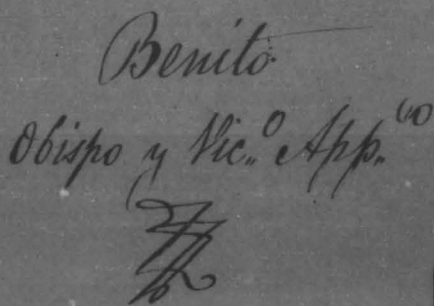 Benito
Obispo y Vic.º App.co